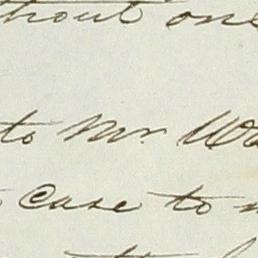 thout one
to Mr. Wa
case to